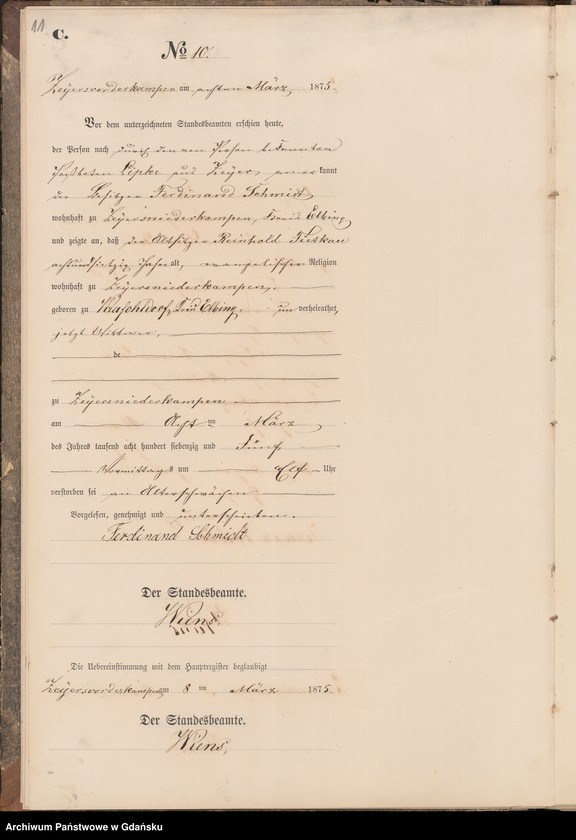 11
C.
No 10.
Zeyersvorderkampen am achten März 1875.
Vor dem unterzeichneten Standesbeamten erschien heute,
der Person nach durch den von Person bekannten
Lipke aus Zeyer, anerkannt
der Besitzer Ferdinand Schmidt
wohnhaft zu Zeyersniederkampen, Kreis Elbing
und zeigte an, daß der Altsitzer Reinhold
achtundsiebzig Jahre alt, evangelischer Religion
wohnhaft zu Zeyersniederkampen,
geboren zu Kreis Elbing, verheirathet,
jetzt Wittwer,
de
zu Zeyersniederkampen
am Acht ten März
des Jahres tausend acht hundert siebenzig und Fünf
Vormittags um Elf Uhr
verstorben sei an Altersschwäche
Vorgelesen, genehmigt und unterschrieben.
Ferdinand Schmidt
Der Standesbeamte.
Wiens.
Die Uebereinstimmung mit dem Hauptregister beglaubigt
Zeyersvorderkampen am 8 ten März 1875.
Der Standesbeamte.
Wiens.
Archiwum Państwowe w Gdańsku